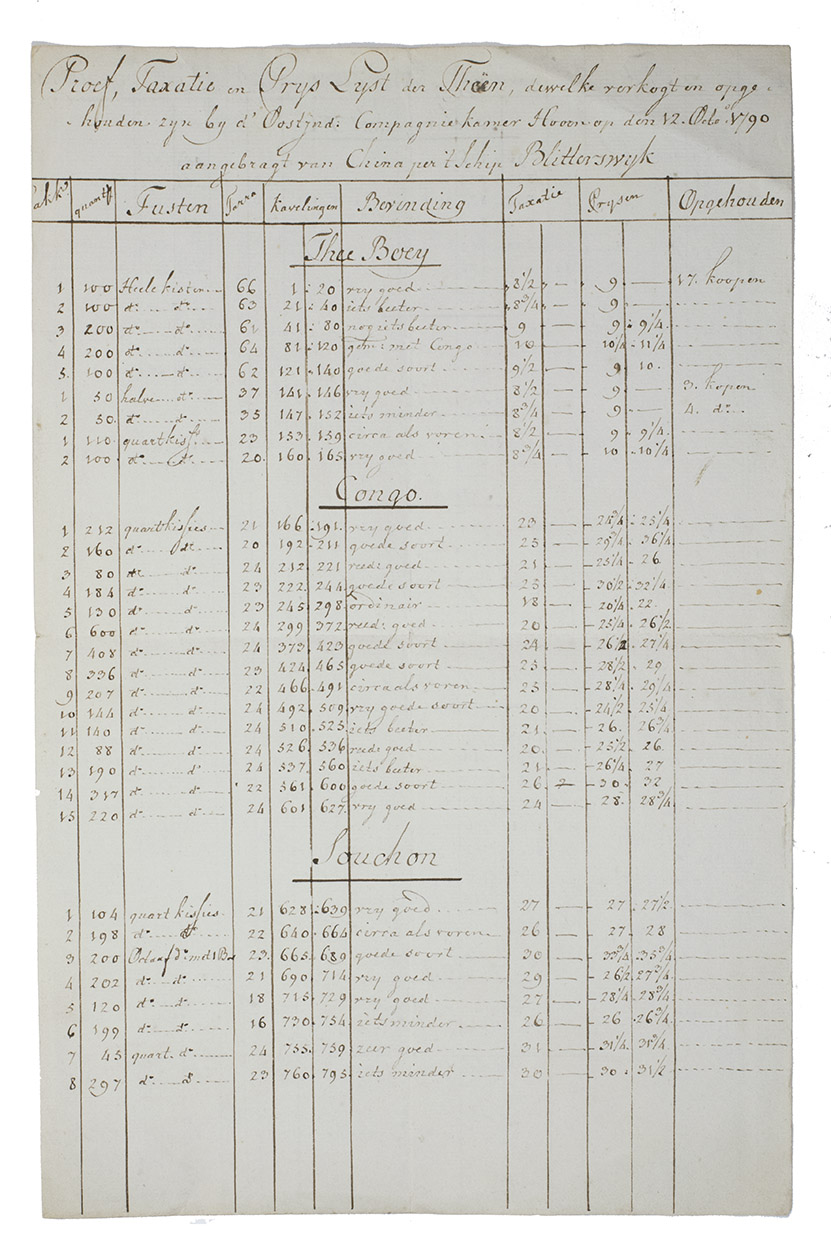 Proef, Taxatie en Prys Lyst der Theën, dewelke verkogt en opge-
houden zyn by d' Oostynd: Compagnie kamer Hoorn op den 12. Octob 1790
aangebragt van China per 't Schip Blitterswyk
quantt Fusten Tarra Kavelingen Bevinding Taxatie Prysen Opgehouden
Thee Boey
1 100 Heele kisten 66 1 : 20 vry goed 8 1/2 — 9 — 17. koopen
2 100 do do 63 21 : 40 iets beeter 8 3/4 — 9 —
3 200 do do 61 41 : 80 nog iets beeter 9 — 9 : 9 1/4
4 200 do do 64 81 : 120 gem: met Congo 10 — 10 1/4 - 11 1/4
5. 100 do do 62 121 : 140 goede soort 9 1/2 — 9 10.
1 50 halve do 37 141 : 146 vry goed 8 1/2 — 9 — 3. kopen
2 50. do do 35 147 : 152 iets minder 8 3/4 — 9 — 4. do
1 110 quart kisj 23 153 : 159 circa als voren 8 1/2 — 9 9 1/4
2 100 do do 20. 160. 165 vry goed 8 3/4 — 10 - 10 1/4
Congo.
1 212 quart kisjes 21 166 - 191. vry goed 23 — 24 3/4 : 25 1/4
2 160 do do 20 192 - 211 goede soort 25 — 29 3/4 36 1/4
3 80 do do 24 212 221 reed: goed 21 — 25 1/4 - 26
4 184 do do 23 222. 244 goede soort 25 — 30 1/2 : 32 1/4
5 130 do do 23 245 298 ordinair 18 — 20 1/4 22
6 600 do do 24 299 372 reed: goed 20 — 25 1/4 26 1/2
7 408 do do 24 373 423 goede soort 24 — 26 1/2 27 1/4
8 336 do do 23 424 465 goede soort 25 — 28 1/2 . 29
9 207 do do 22 466 - 491 circa als voren 25 — 28 1/4 . 29 1/4
10 144 do do 24 492 509 vry goede soort 20 — 24 1/2 25 1/4
11 140 do do 24 510 . 525 iets beeter 21 — 26. 26 3/4
12 88 do do 24 526 536 reed: goed 20. — 25 1/2 26.
13 190 do do 24 537. 560 iets beeter 21 — 26 1/4 27
14 317 do do 22 561 600 goede soort 26 2 30 . 32
15 220 do do 24 601 627 vry goed 24 — 28 . 28 3/4
Souchon
1 104 quart kisjes 21 628 : 639 vry goed 27 — 27 27 1/2
2 198 do do 22 640 . 664 circa als voren 26 — 27 28
3 200 23. 665. 689 goede soort 30 — 33 3/4 . 35 3/4
4 202 do do 21 690 714 vry goed 29 — 26 1/2 27 3/4
5 120 do do 18 715 . 729 vry goed 27 — 28 1/4 . 28 3/4
6 199 do do 16 730 . 754 iets minder 26 — 26 26 3/4
7 45 quart do 24 755. 759 zeer goed 31 — 31 1/4 31 3/4
8 297 do do 23 760 795 iets minder 30 — 30 . 31 1/2